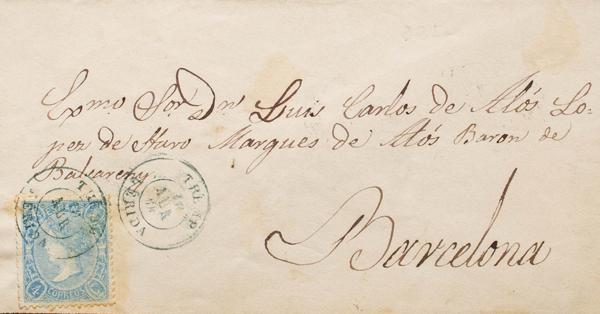 Exmo. Sor. Dn. Luis Carlos de Alós Lo=
pez de Haro Marques de Alós Baron de
Balsareny
Barcelona
TREMP
LERIDA
CORREOS